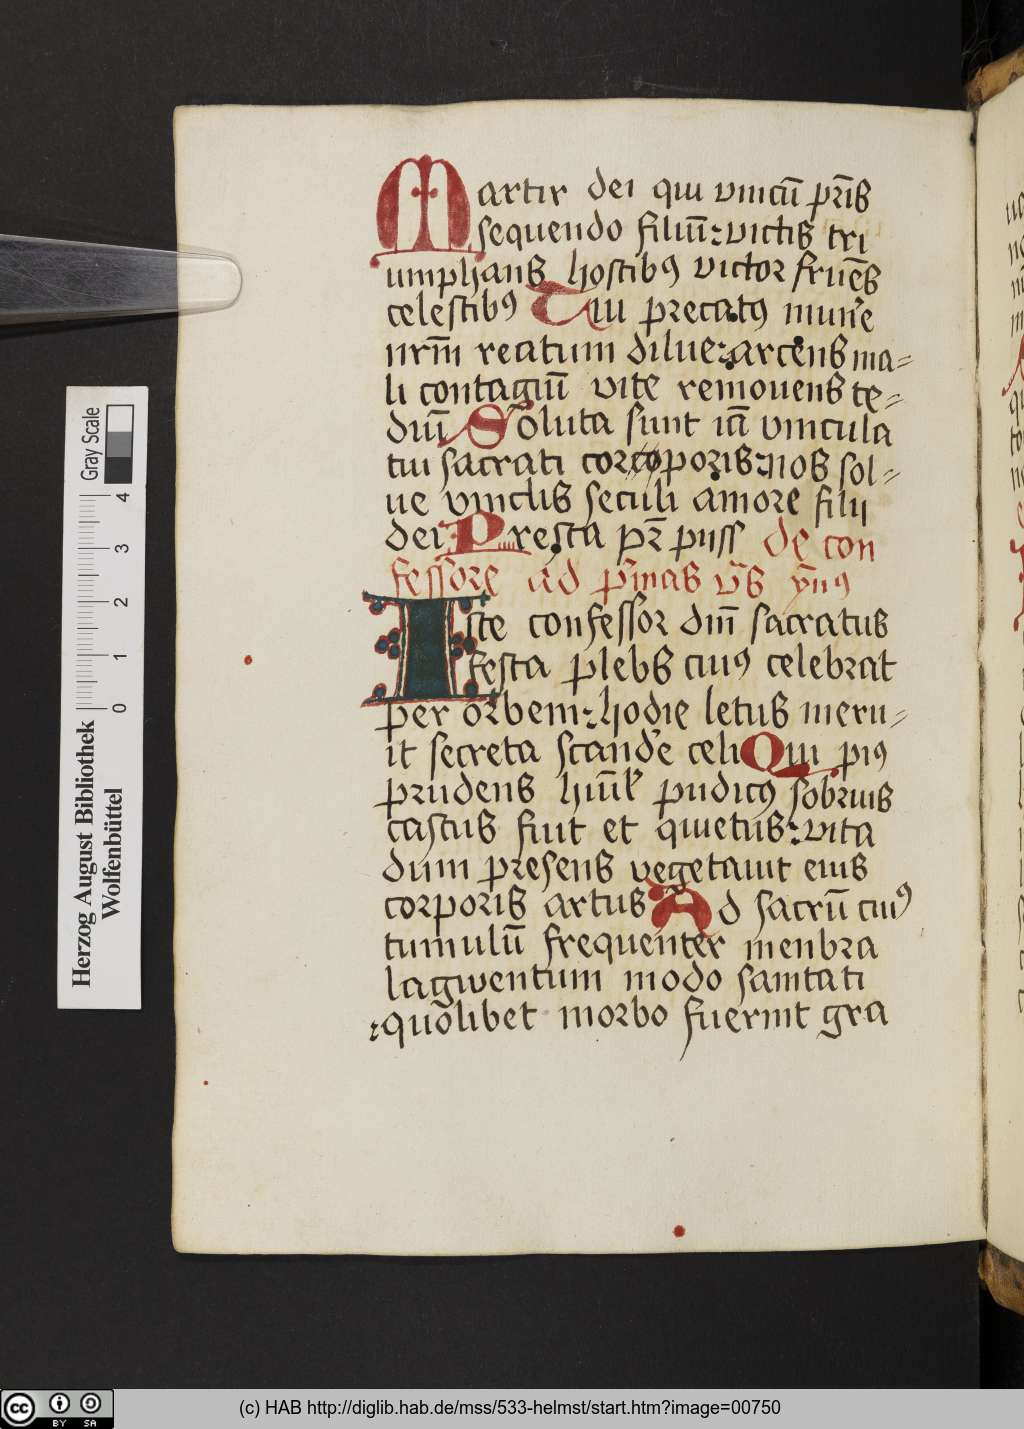 Martir dei qui vnicū pr̄is
sequendo filiū: victis tri
umphans hostibꝰ victor fruēs
celestibꝰ Tui precatꝰ mun̄e
nrm̄ reatum dilue: arcens ma⸗
li contagiū vite remouens te⸗
diū Soluta sunt iā vincula
tui sacrati corcoporis: nos sol⸗
ue vinclis seculi amore filij
dei Presta pr̄ pijss de con
fessore ad p̄mas vs̄ ym̄ꝰ
Iste confessor dm̄ sacratus
festa plebs cuiꝰ celebrat
per orbem: hodie letus meru⸗
it secreta scand'e celi Qui piꝰ
prudens hūil' pudicꝰ sobrius
castus fuit et quietus: vita
dum presens vegetauit eius
corporis artus Ad sacrū cuiꝰ
tumulū frequenter menbra
lagwentum modo sanitati
: quolibet morbo fuerint gra
Gray Scale
0 1 2 3 4
Herzog August Bibliothek
Wolfenbüttel
cc BY SA
(c) HAB http://diglib.hab.de/mss/533-helmst/start.htm?image=00750